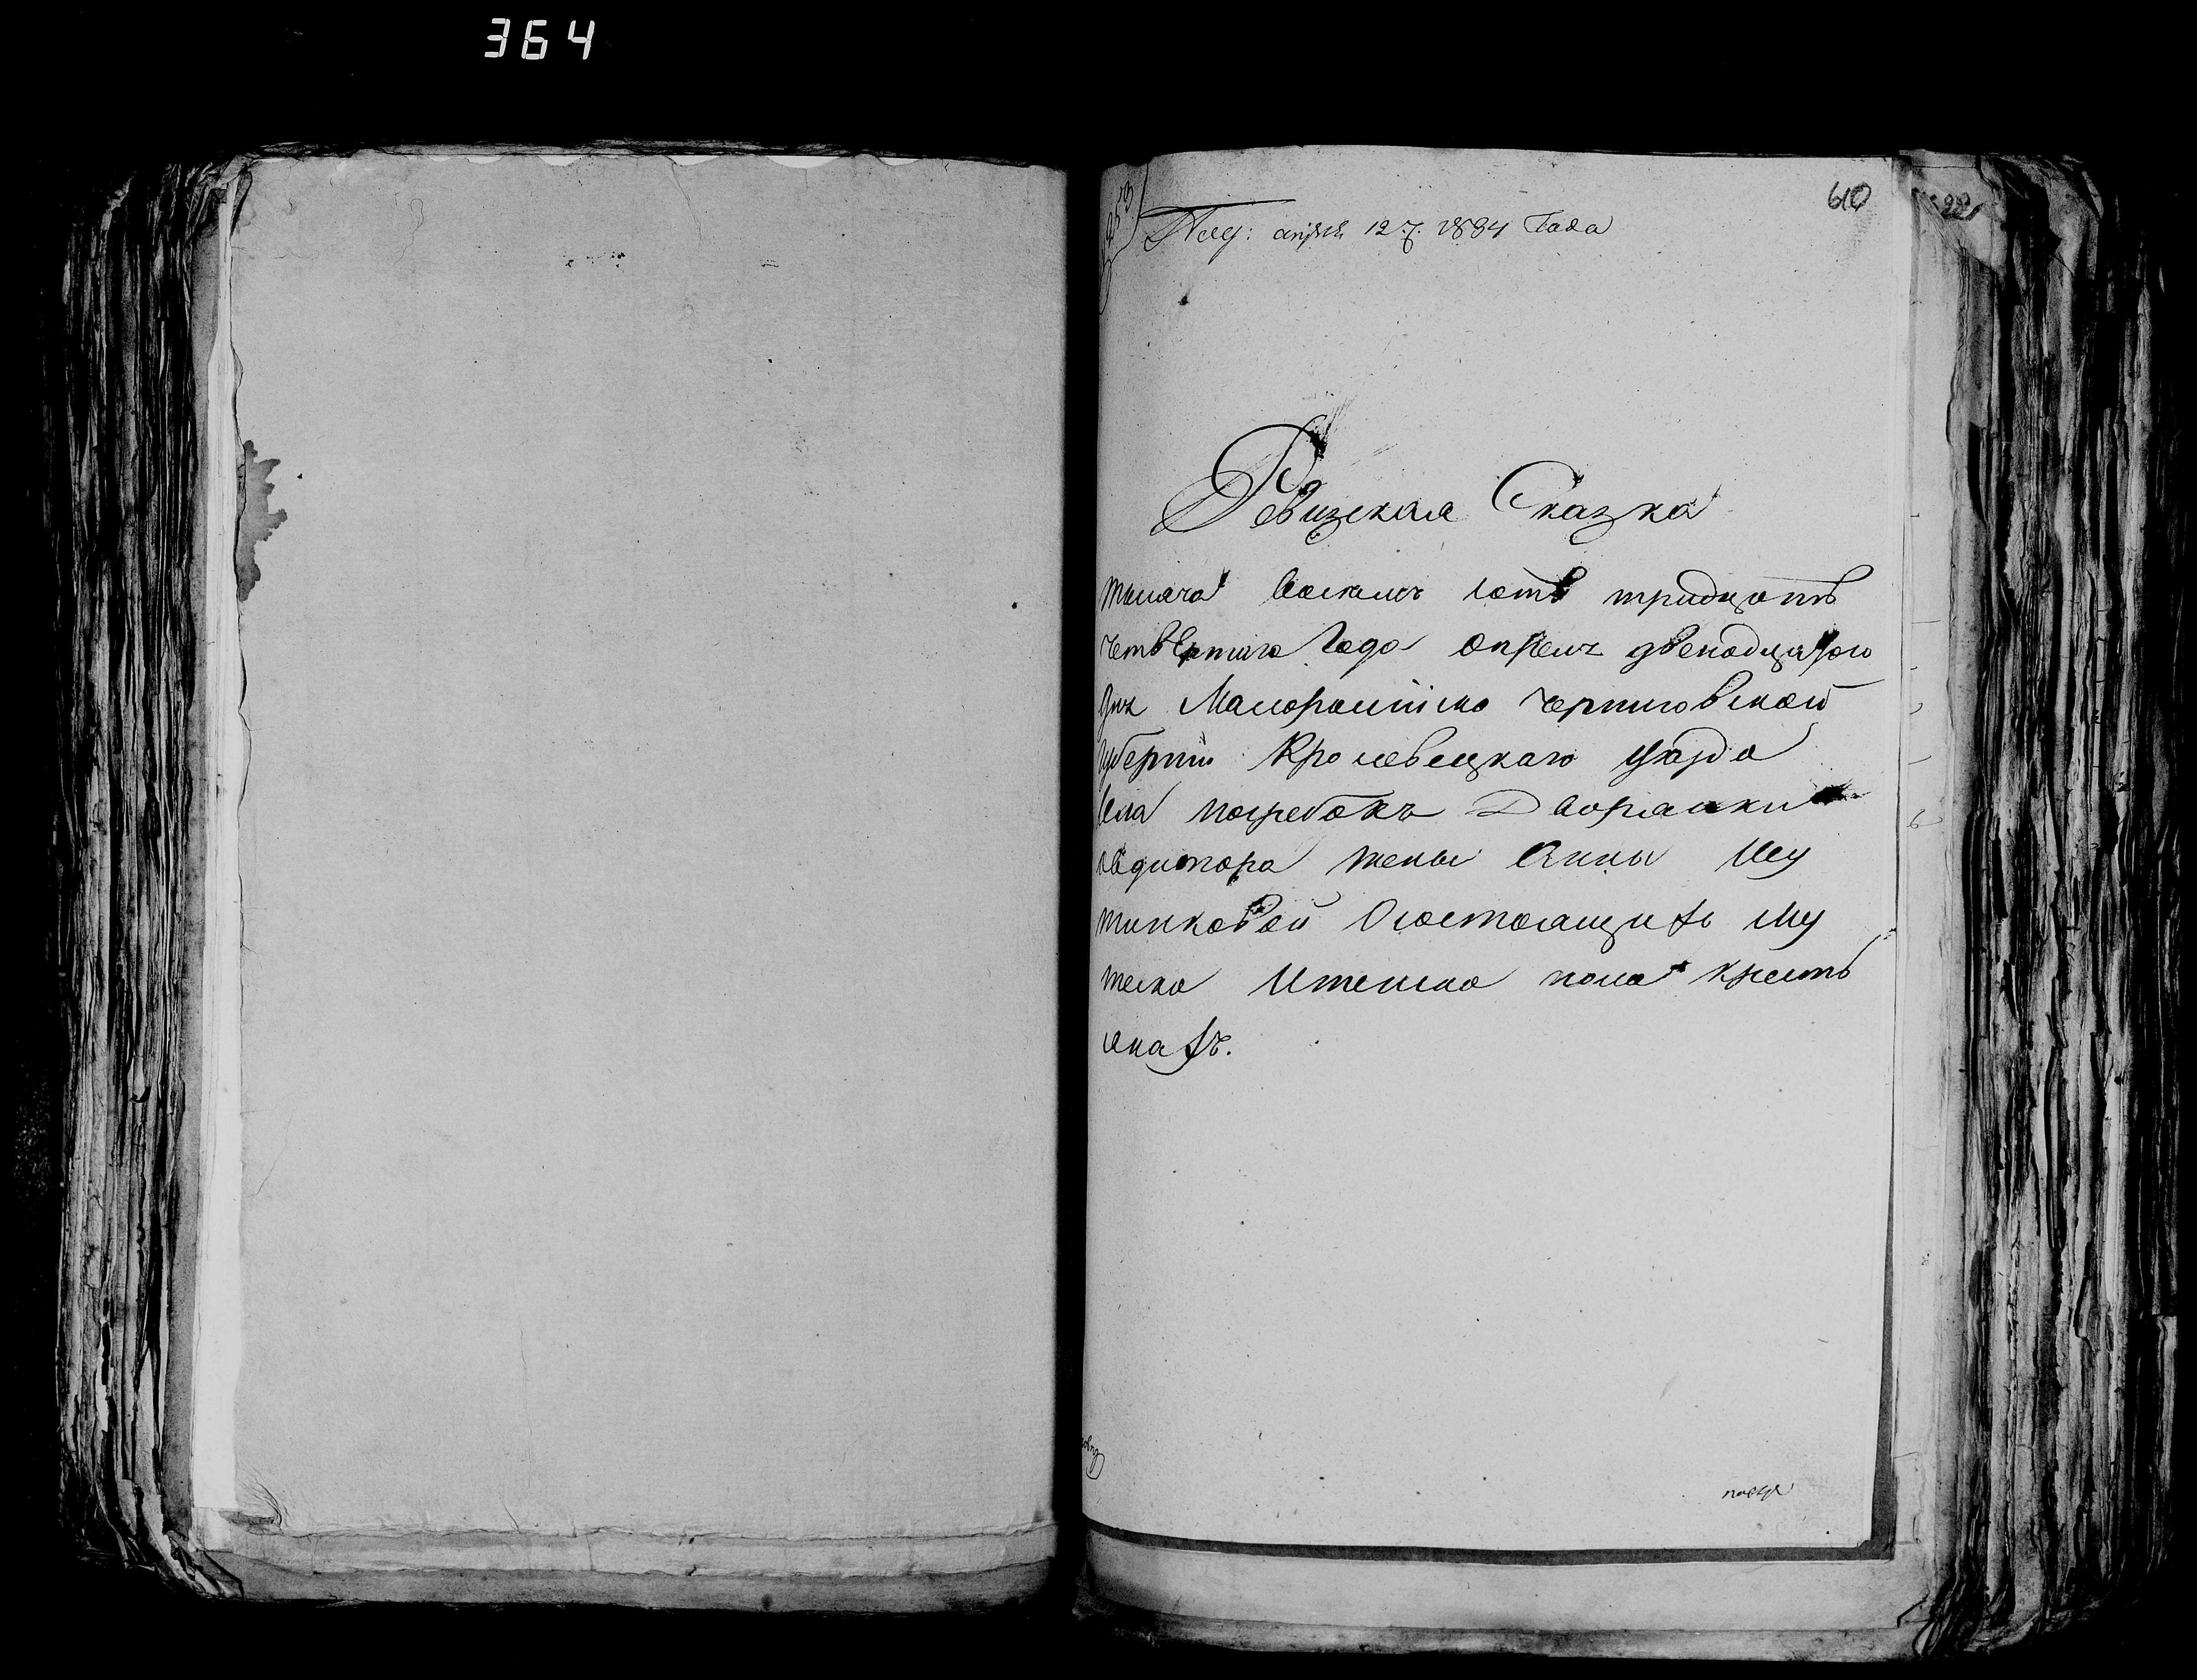 364
610
апреля 12 д: 1834 Года
Ревизская Сказка
тысяча восемъ сотъ тридцатъ
четвертаго Года апреля двенадцатого
дня Малоросийско черниговской
губернии Кролевецкаго уезда
села погребокъ Дворянки
авдитора жены Анны Шу
тинковой О состоящихъ му
жеска и женска пола кресть
янахъ.